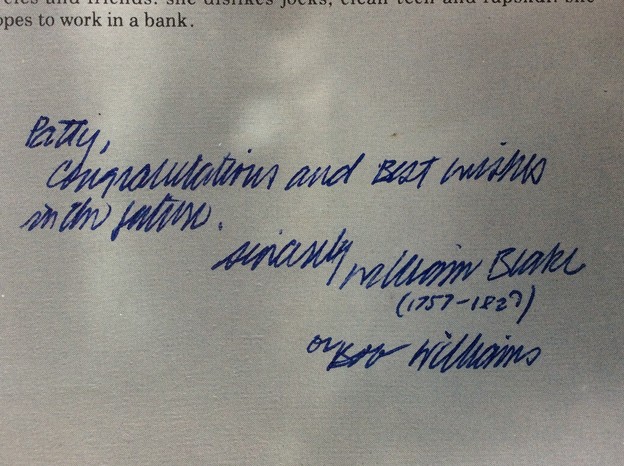 cles and friends. She dislikes jocks, clean teeh and rapskur. She
opes to work in a bank.
Patty,
Congratulations and Best wishes
in the future.
sincerely William Blake
(1757-1827)
or Bob Williams